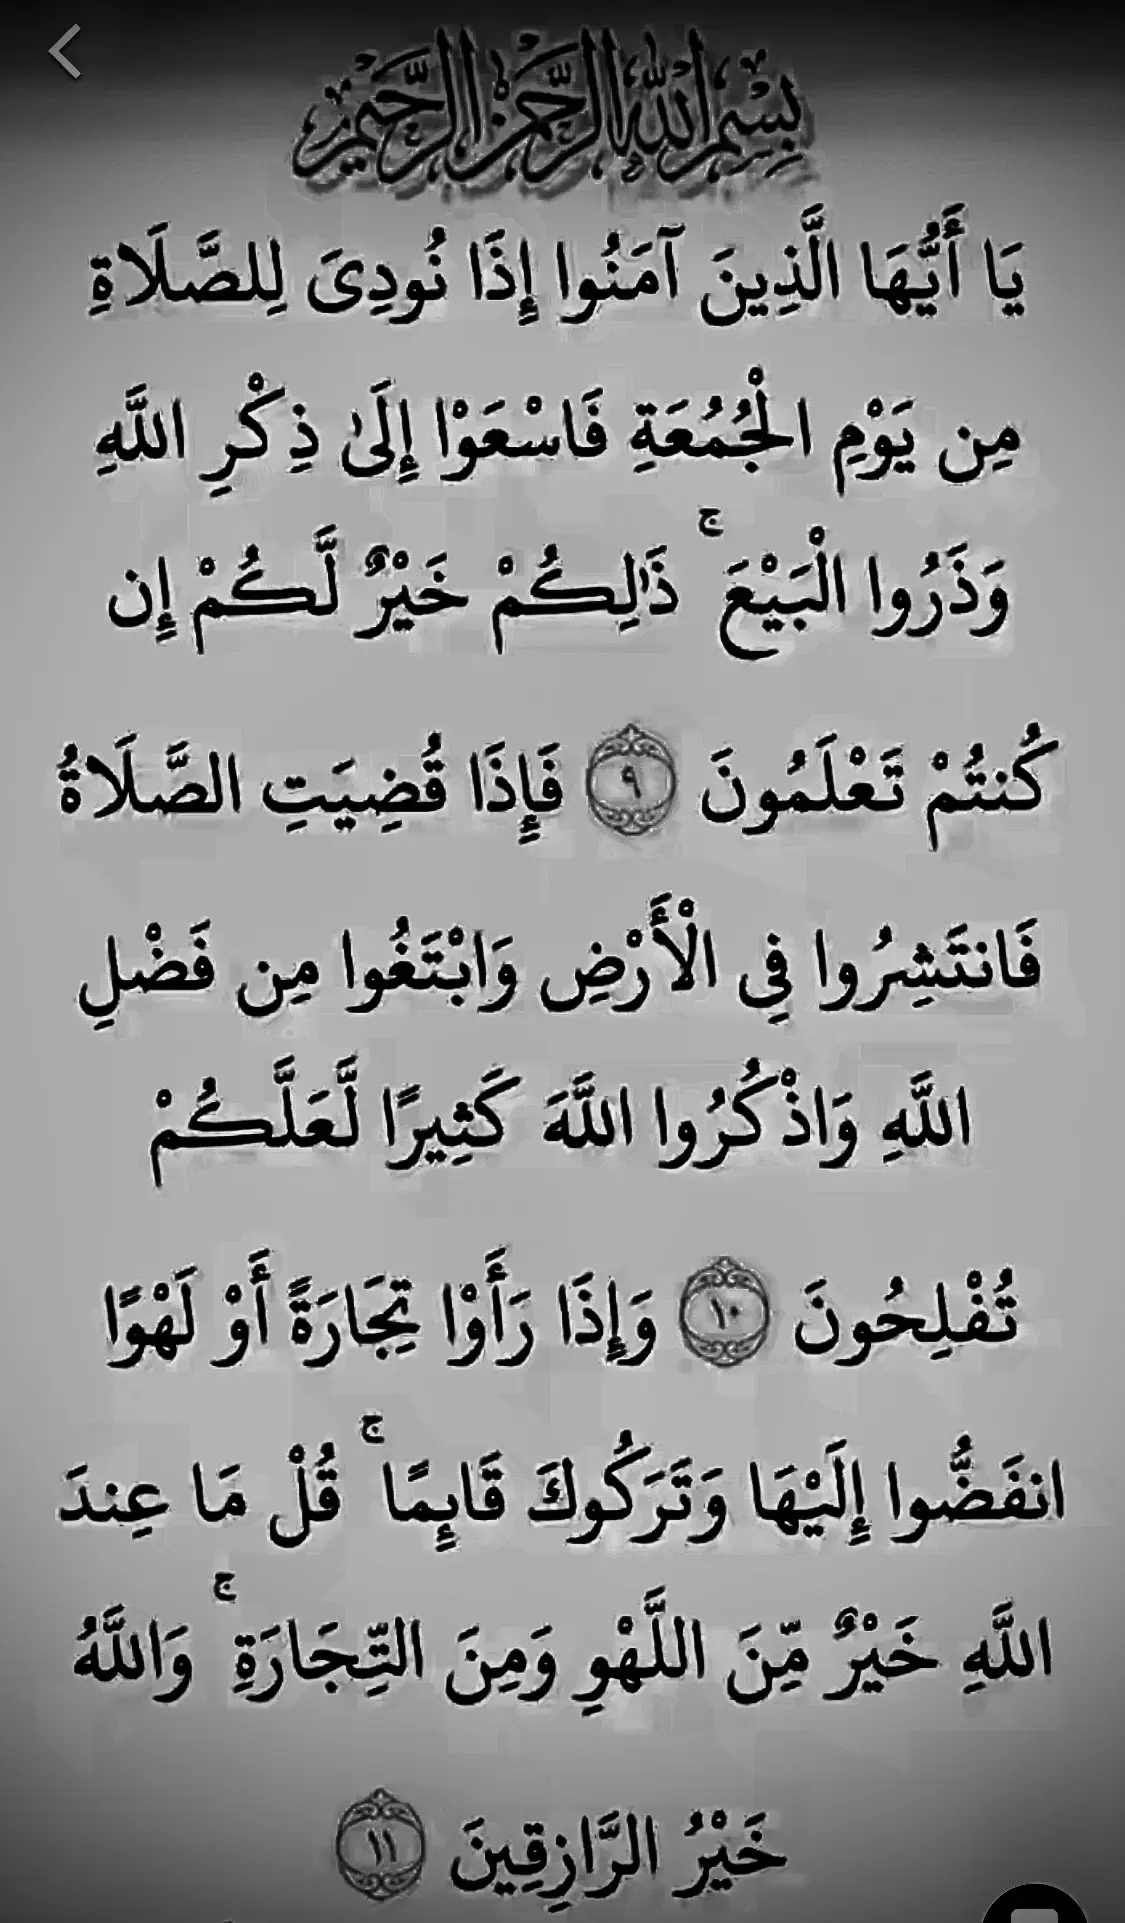 بِسْمِ اللهِ الرَّحْمٰنِ الرَّحِيْمِ
يَا أَيُّهَا الَّذِينَ آمَنُوا إِذَا نُودِىَ لِلصَّلَاةِ
مِن يَوْمِ الْجُمُعَةِ فَاسْعَوْا إِلَىٰ ذِكْرِ اللَّهِ
وَذَرُوا الْبَيْعَ ۚ ذَٰلِكُمْ خَيْرٌ لَّكُمْ إِن
كُنتُمْ تَعْلَمُونَ ٩ فَإِذَا قُضِيَتِ الصَّلَاةُ
فَانتَشِرُوا فِى الْأَرْضِ وَابْتَغُوا مِن فَضْلِ
اللَّهِ وَاذْكُرُوا اللَّهَ كَثِيرًا لَّعَلَّكُمْ
تُفْلِحُونَ ١٠ وَإِذَا رَأَوْا تِجَارَةً أَوْ لَهْوًا
انفَضُّوا إِلَيْهَا وَتَرَكُوكَ قَايِمًا ۚ قُلْ مَا عِندَ
اللَّهِ خَيْرٌ مِّنَ اللَّهْوِ وَمِنَ التِّجَارَةِ ۚ وَاللَّهُ
خَيْرُ الرَّازِقِينَ ١١